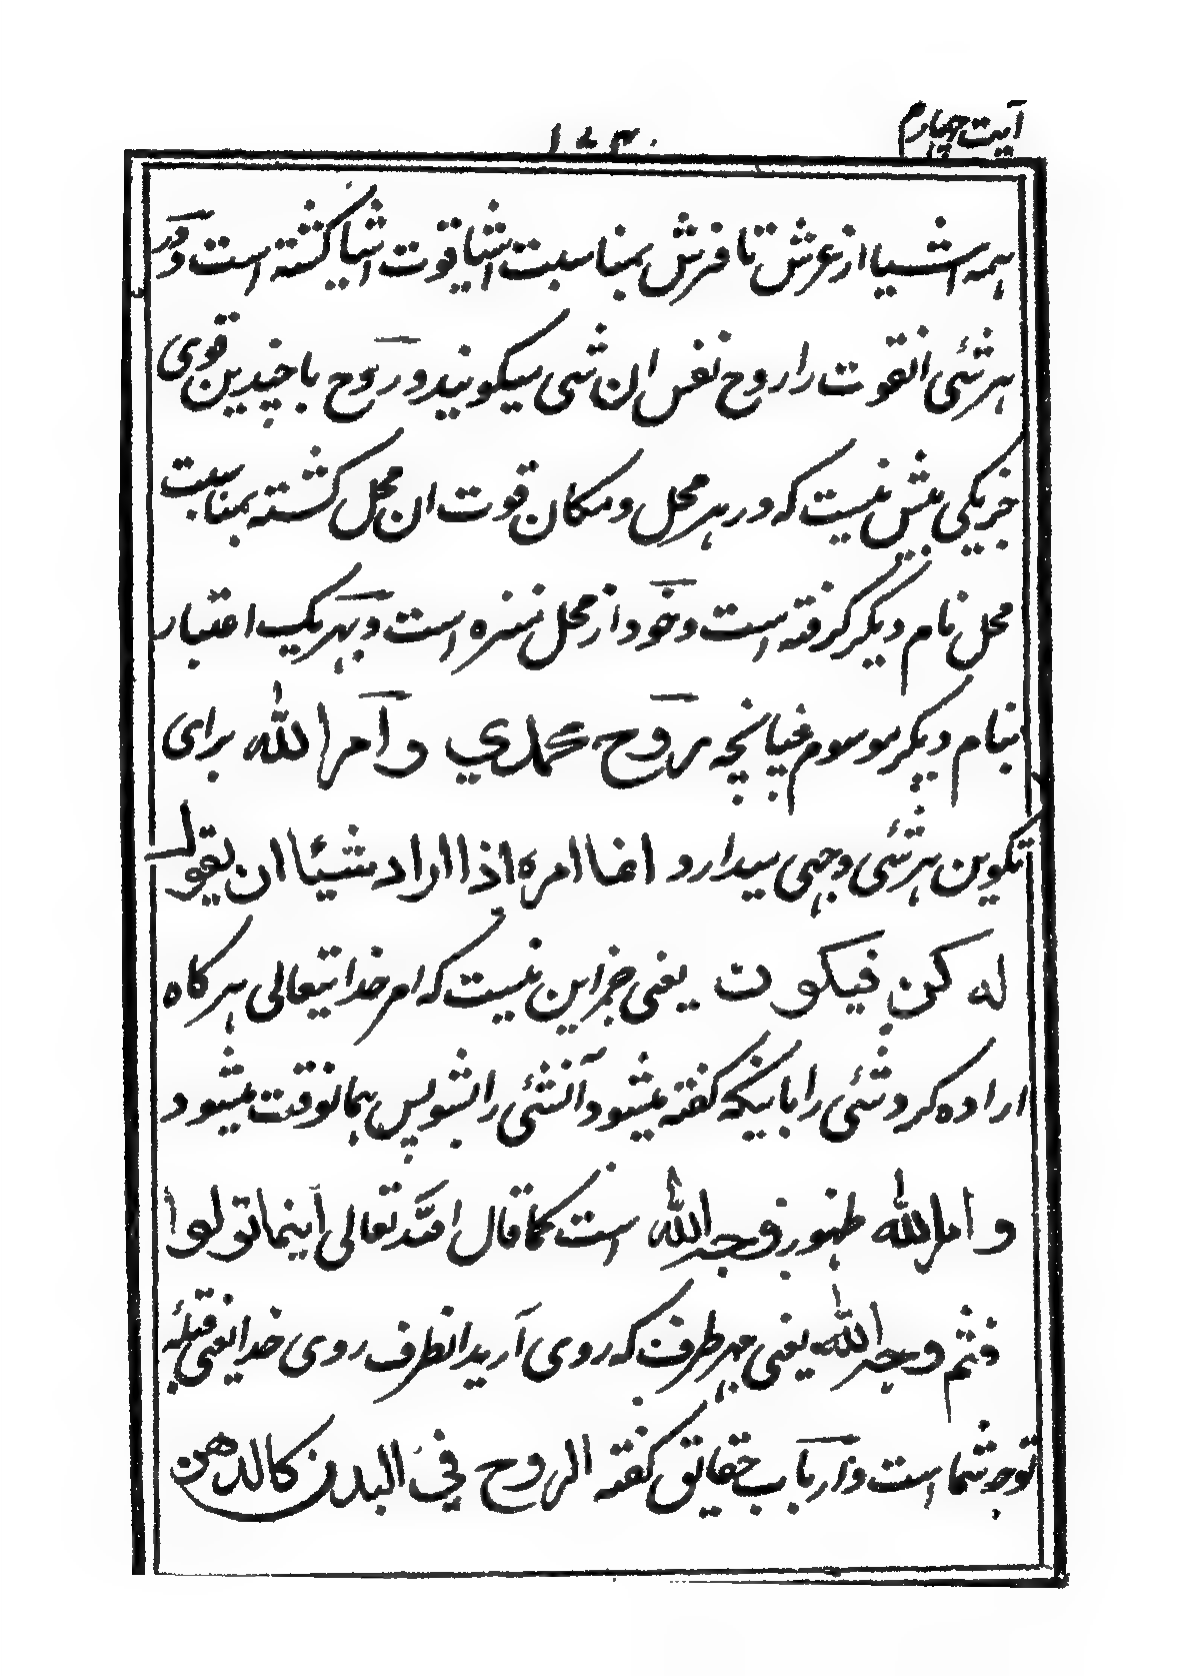 آیت چهارم
۱۴۳۰
همه اشیا از عرش تا فرش بمناسبت اشیا قوت اشیا کشته است و در
هر شئی انقوت را روح نفس ان شی میکویند و روح با چندین قوی
خریکی بیش نیست که در هر محل و مکان قوت ان محل کشته بمناسبت
محل نام دیکر کرفته است و خود از محل منزه است و بهر یک اعتبار
بنام دیکر موسوم چنانچه روح محمدي و امر الله برای
تکوین هر شئی وجهی میدارد و انما امره اذا اراد شیئا ان یقول
له کن فیکون یعنی جز این نیست که امر خدایتعالی هر کاه
اراده کرد شئی را باینکه کفته میشود آنشئی را بشو پس همانوقت میشود
و امر الله ظهور نور وجه الله است کما قال الله تعالی اینما تولوا
فثم وجه الله یعنی بهر طرف که روی آرید انطرف روی خدا یعنی قبله
توجه شما است و ارباب حقایق کفته الروح في البدن کالدهن